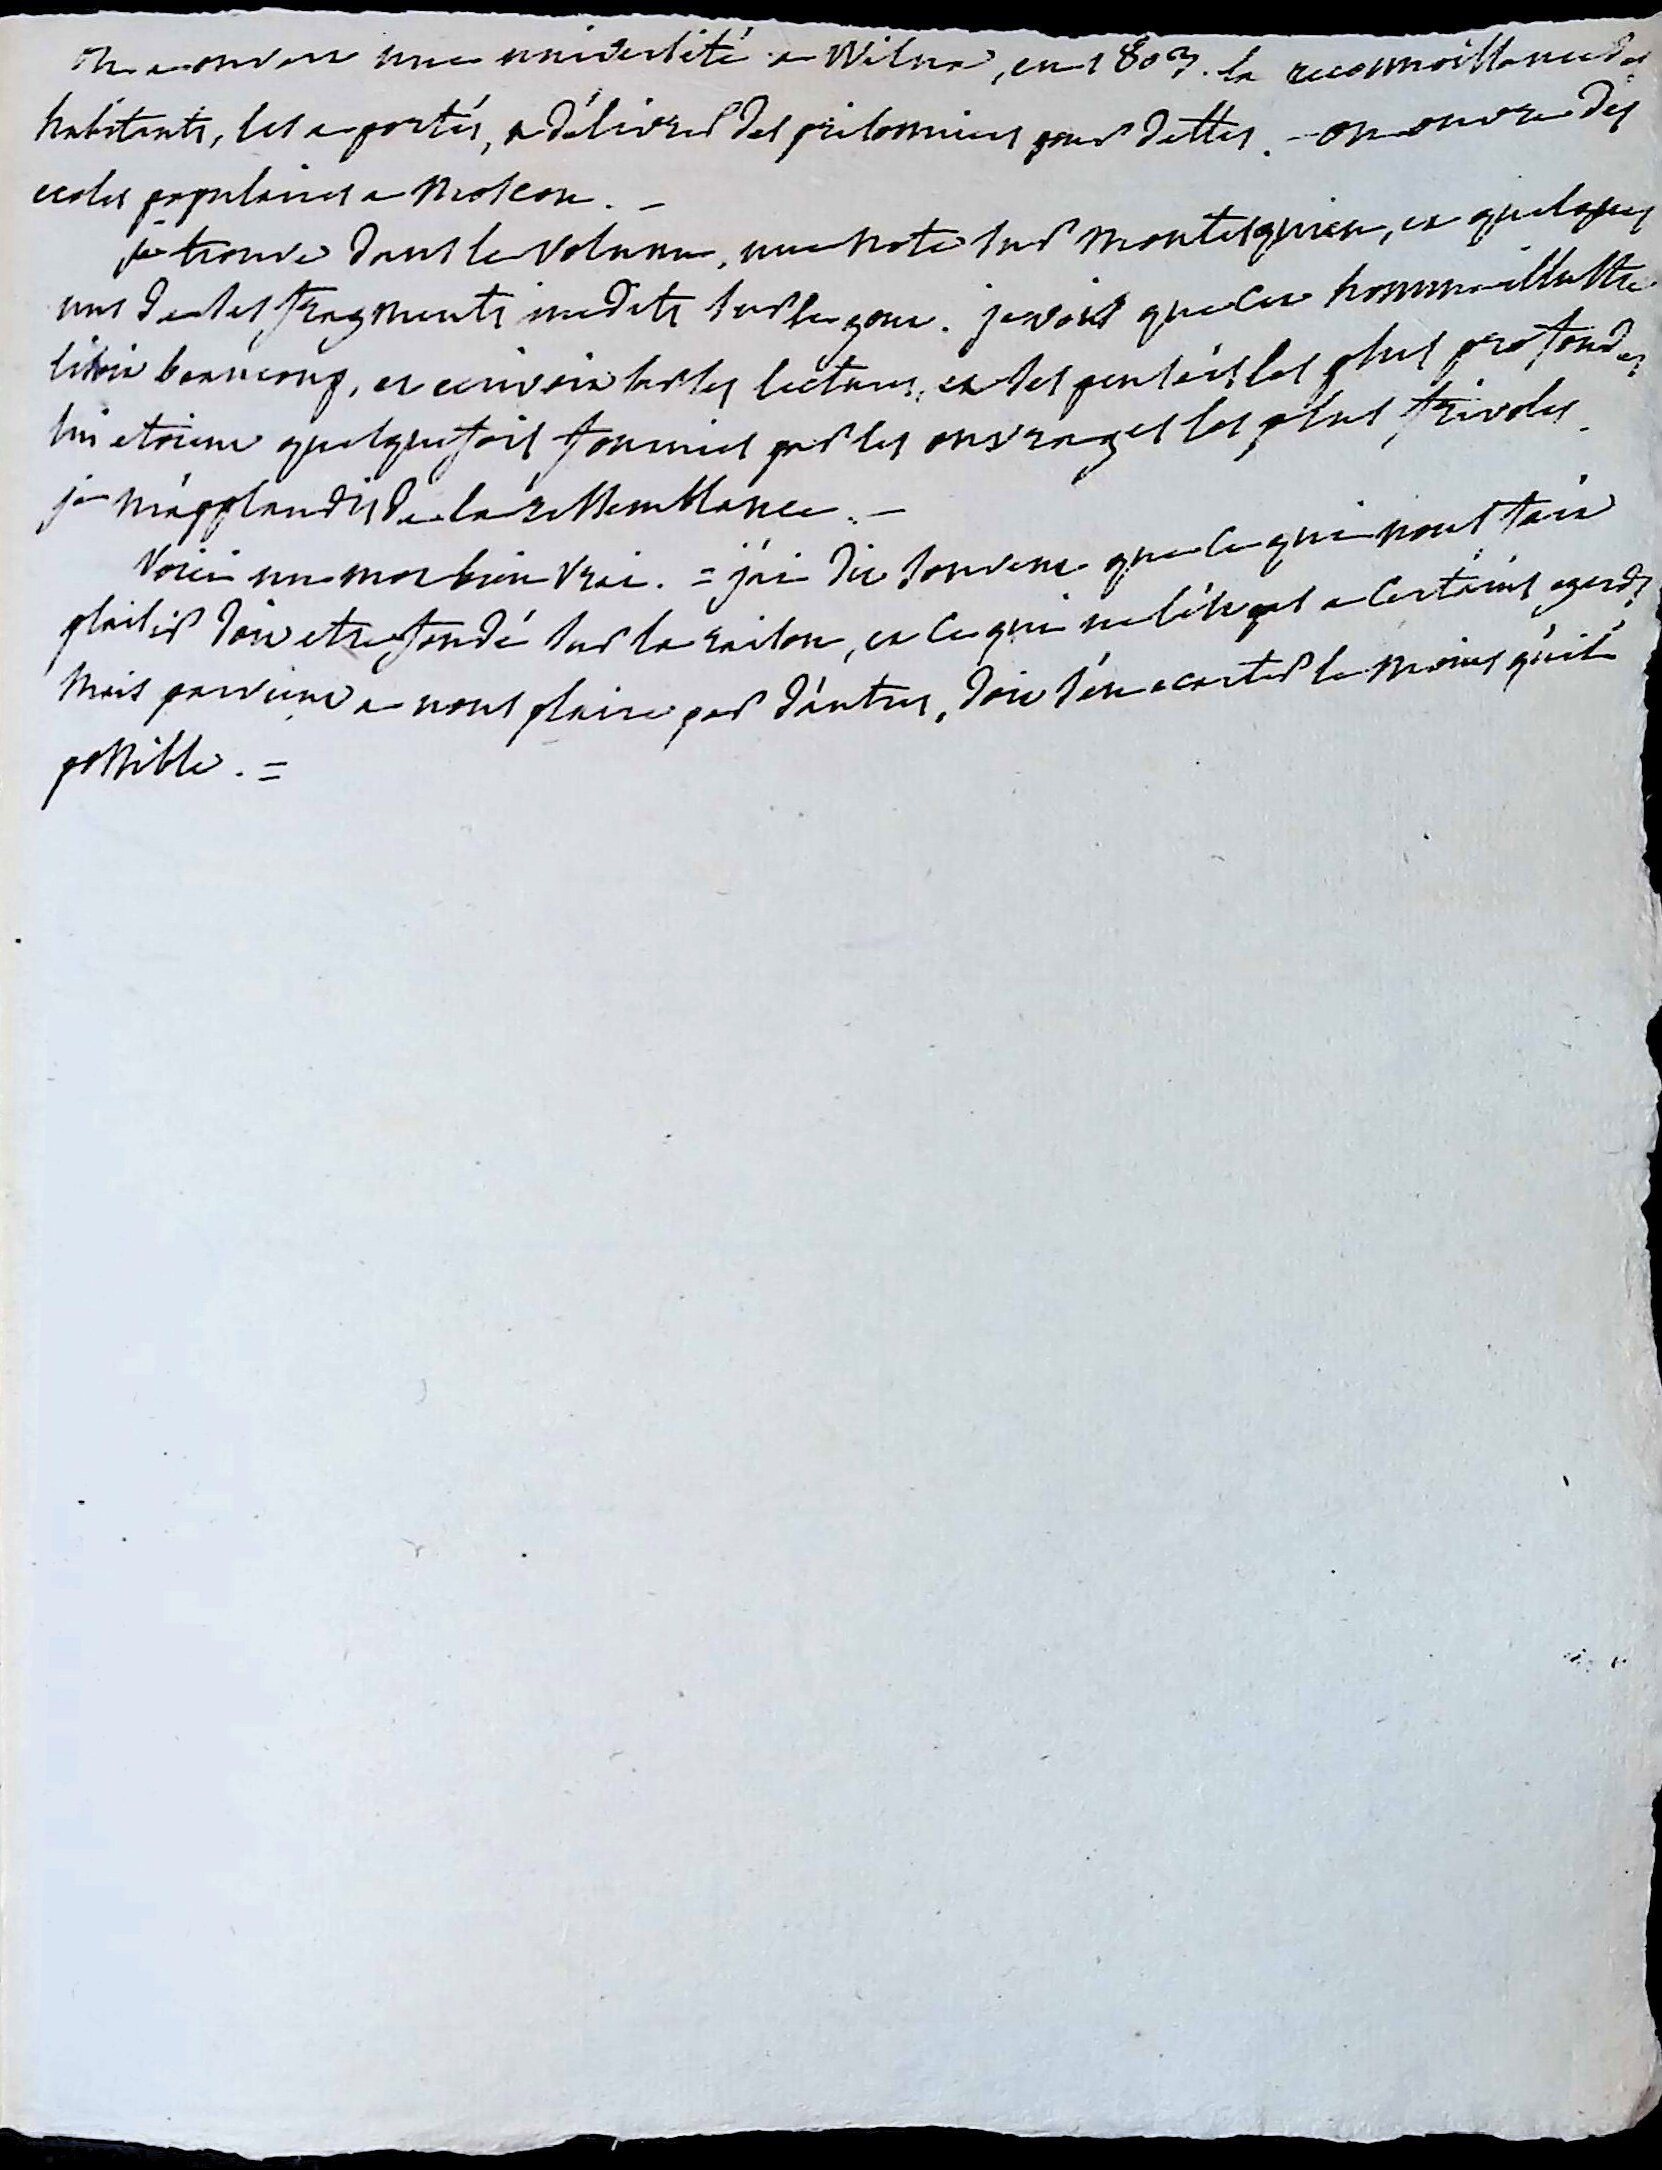 on a ouvert une université a Wilna, en 1803. la reconnoissance des
habitants, les a portés, a délivrer des prisonniers pour dettes. - on ouvre des
ecoles populaires a Moscou. -
je trouve dans le volume, une note sur Montesquieu, et quelques
uns de ses fragments inedits sur le gout. je vois que cet homme illustre
lisoit beaucoup, et ecrivoit sur ses lectures, et ses pensées les plus profondes,
lui etoient quelquefois fournies par les ouvrages les plus frivoles.
je m'applaudis de la ressemblance. -
Voici un mot bien vrai. = j'ai dit souvent que ce qui nous fait
plaisir doit etre fondé sur la raison, et ce qui ne l'est pas a certains egards
mais parvient a nous plaire par d'autres, doit s'en ecarter le moins qu'il
possible. =